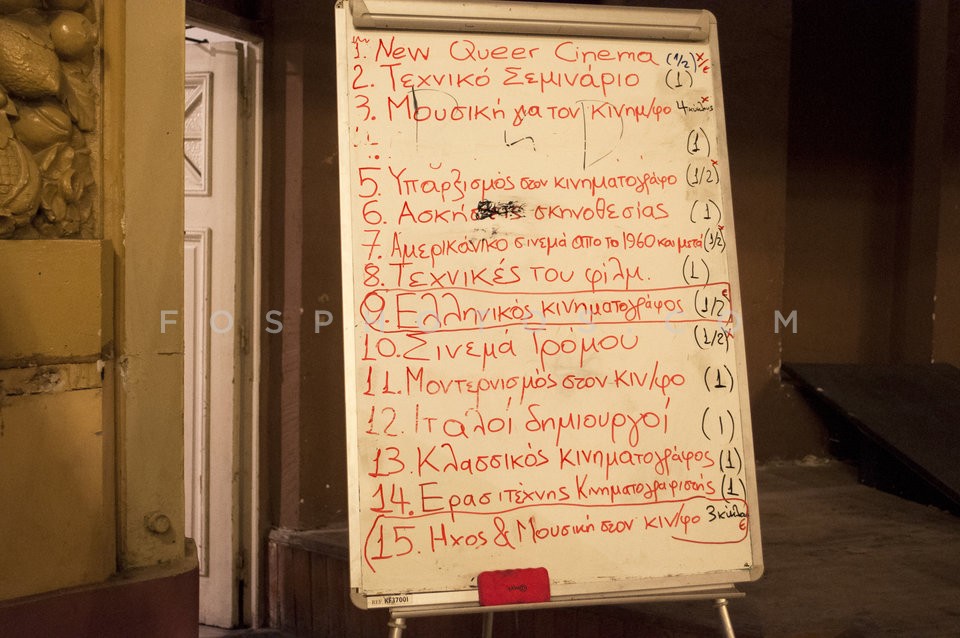 1. New Queer Cinema (1/2) x/ε
2. Τεχνικό Σεμινάριο (1)
3. Μουσική για τον κινημ/φο
(1)
5. Υπαρξισμός στον κινηματογράφο (1/2) x
6. Ασκή σκηνοθεσίας (1)
7. Αμερικάνικο σινεμά απο το 1960 και μετά (1/2) x
8. Τεχνικές του φιλμ. (1)
9. Ελληνικός κινηματογράφος (1/2) ε
FOSPHOTOS.COM
10. Σινεμά Τρόμου (1/2) x
11. Μοντερνισμός στον κιν/φο (1)
12. Ιταλοί δημιουργοί (1)
13. Κλασσικός κινηματογράφος (1)
14. Ερασιτέχνης Κινηματογραφιστής (1)
15. Ηχος & Μουσική στον κιν/φο 3 κύκλοι ε
REF: KF37001